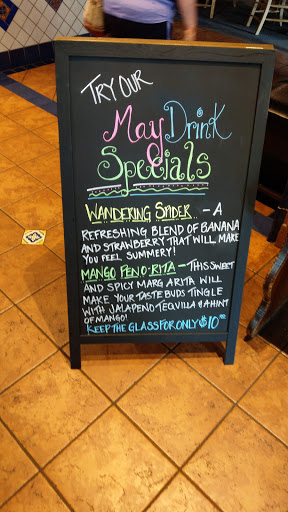 TRY OUR
May Drink
Specials
WANDERING SPIDER - A
REFRESHING BLEND OF BANANA
AND STRAWBERRY THAT WILL MAKE
YOU FEEL SUMMERY!
MANGO PENO-RITA - THIS SWEET
AND SPICY MARGARITA WILL
MAKE YOUR TASTE BUDS TINGLE
WITH JALAPENO TEQUILLA & A HINT
OF MANGO!
KEEP THE GLASS FOR ONLY $10.00